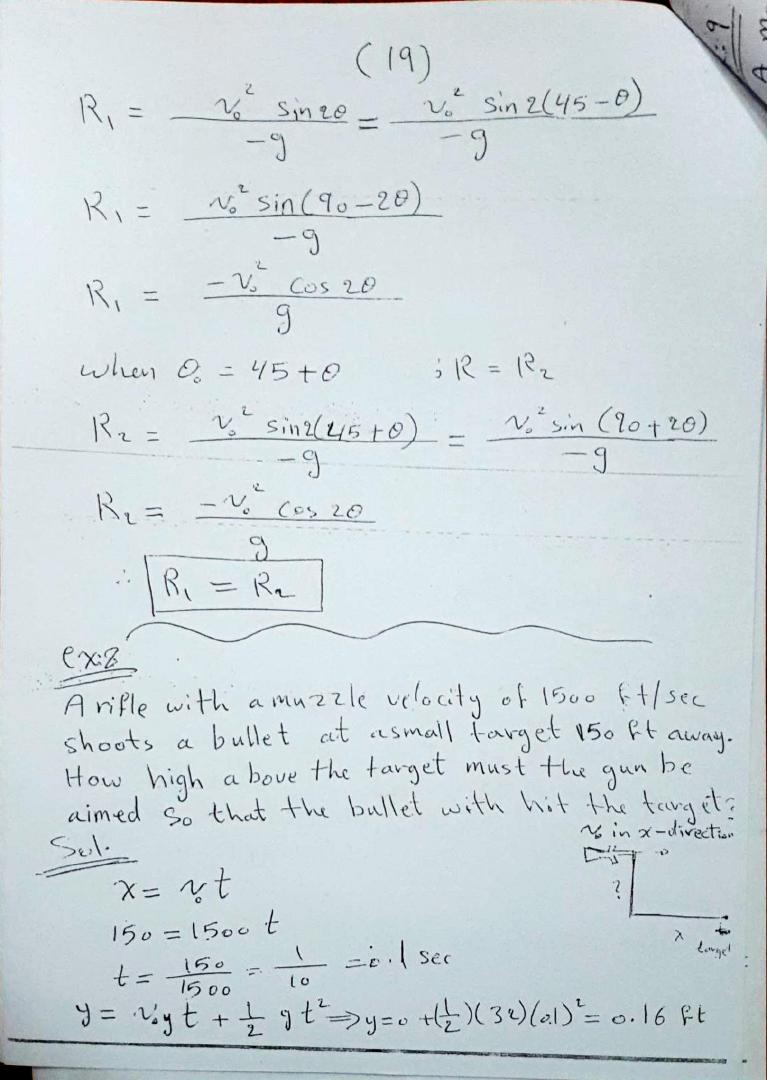 :9
A m
(19)
R₁ = v₀² sin 2θ / -g = v₀² sin 2(45-θ) / -g
R₁ = v₀² sin(90-2θ) / -g
R₁ = -v₀² cos 2θ / g
when θ₀ = 45+θ ; R = R₂
R₂ = v₀² sin 2(45+θ) / -g = v₀² sin (90+2θ) / -g
R₂ = -v₀² cos 2θ / g
∴ R₁ = R₂
ex:8
A rifle with a muzzle velocity of 1500 ft/sec
shoots a bullet at a small target 150 ft away.
How high above the target must the gun be
aimed so that the bullet with hit the target?
Sol.
v₀ in x-direction
?
x
target
x = v₀ t
150 = 1500 t
t = 150/1500 = 1/10 = 0.1 sec
y = v₀y t + 1/2 g t² ⇒ y = 0 + (1/2)(32)(0.1)² = 0.16 ft